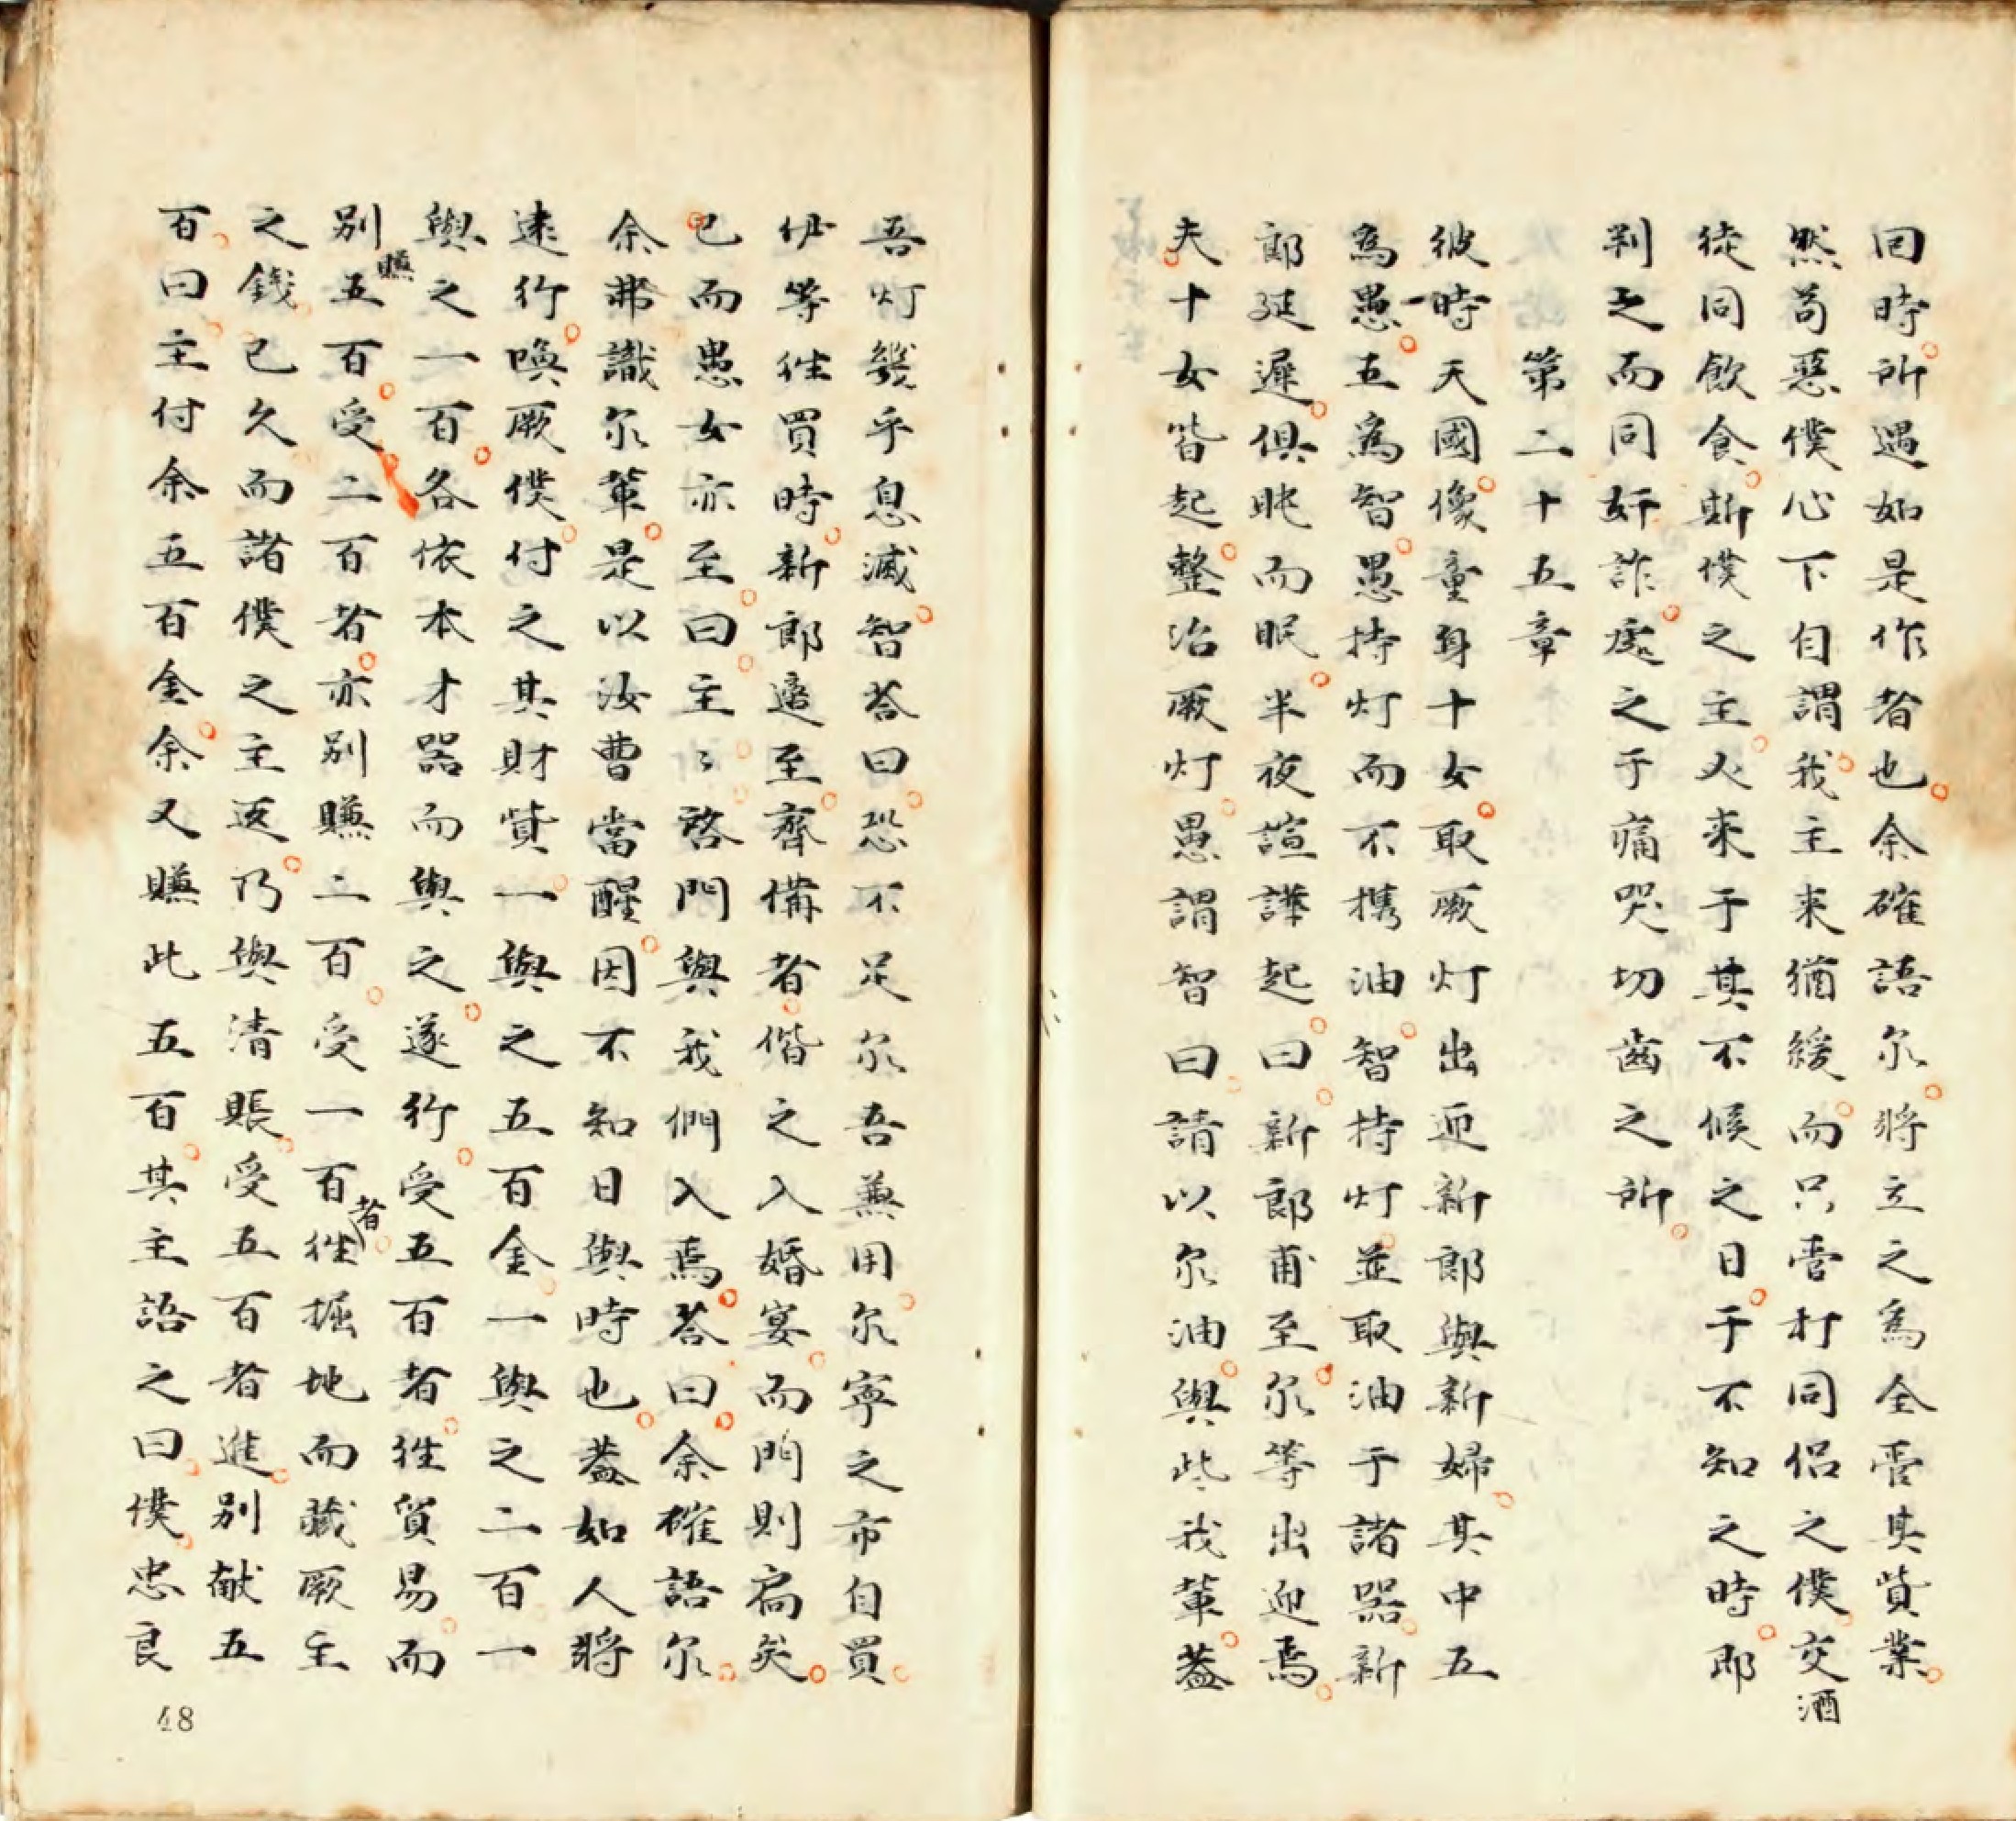 回時所遇如是作者也余確語尔将立之為全啻其貲業
然苟惡僕心下自謂我主来猶緩而只啻打同侣之僕交酒
徒同飲食斯僕之主人来于其不候之日于不知之時即
判之而同奸詐處之于痛哭切齒之所
第二十五章
彼時天國像童身十女取厥灯出迎新郎與新婦其中五
為愚五為智愚持灯而不携油智持灯並取油于諸器新
郎延遲俱眈而眠半夜諠譁起曰新郎甫至尔等出迎焉
夫十女皆起整治厥灯愚謂智曰請以尔油與些我輩蓋
吾灯幾乎息滅智荅曰恐不足尔吾兼用尔寧之市自買
伊等徃買時新郎適至齊備者偕之入婚宴而門則扃矣
已而愚女亦至曰主〻啓門與我們入焉荅曰余確語尔
余弗識尔輩是以汝曹當醒因不知日與時也蓋如人將
遠行喚厥僕付之其財貲一與之五百金一與之二百一
與之一百各依本才器而與之遂行受五百者徃貿易而
別賺五百受二百者亦別賺二百受一百者徃掘地而藏厥主
之錢已久而諸僕之主返乃與清賬受五百者進別献五
百曰主付余五百金余又賺此五百其主語之曰僕忠良
48